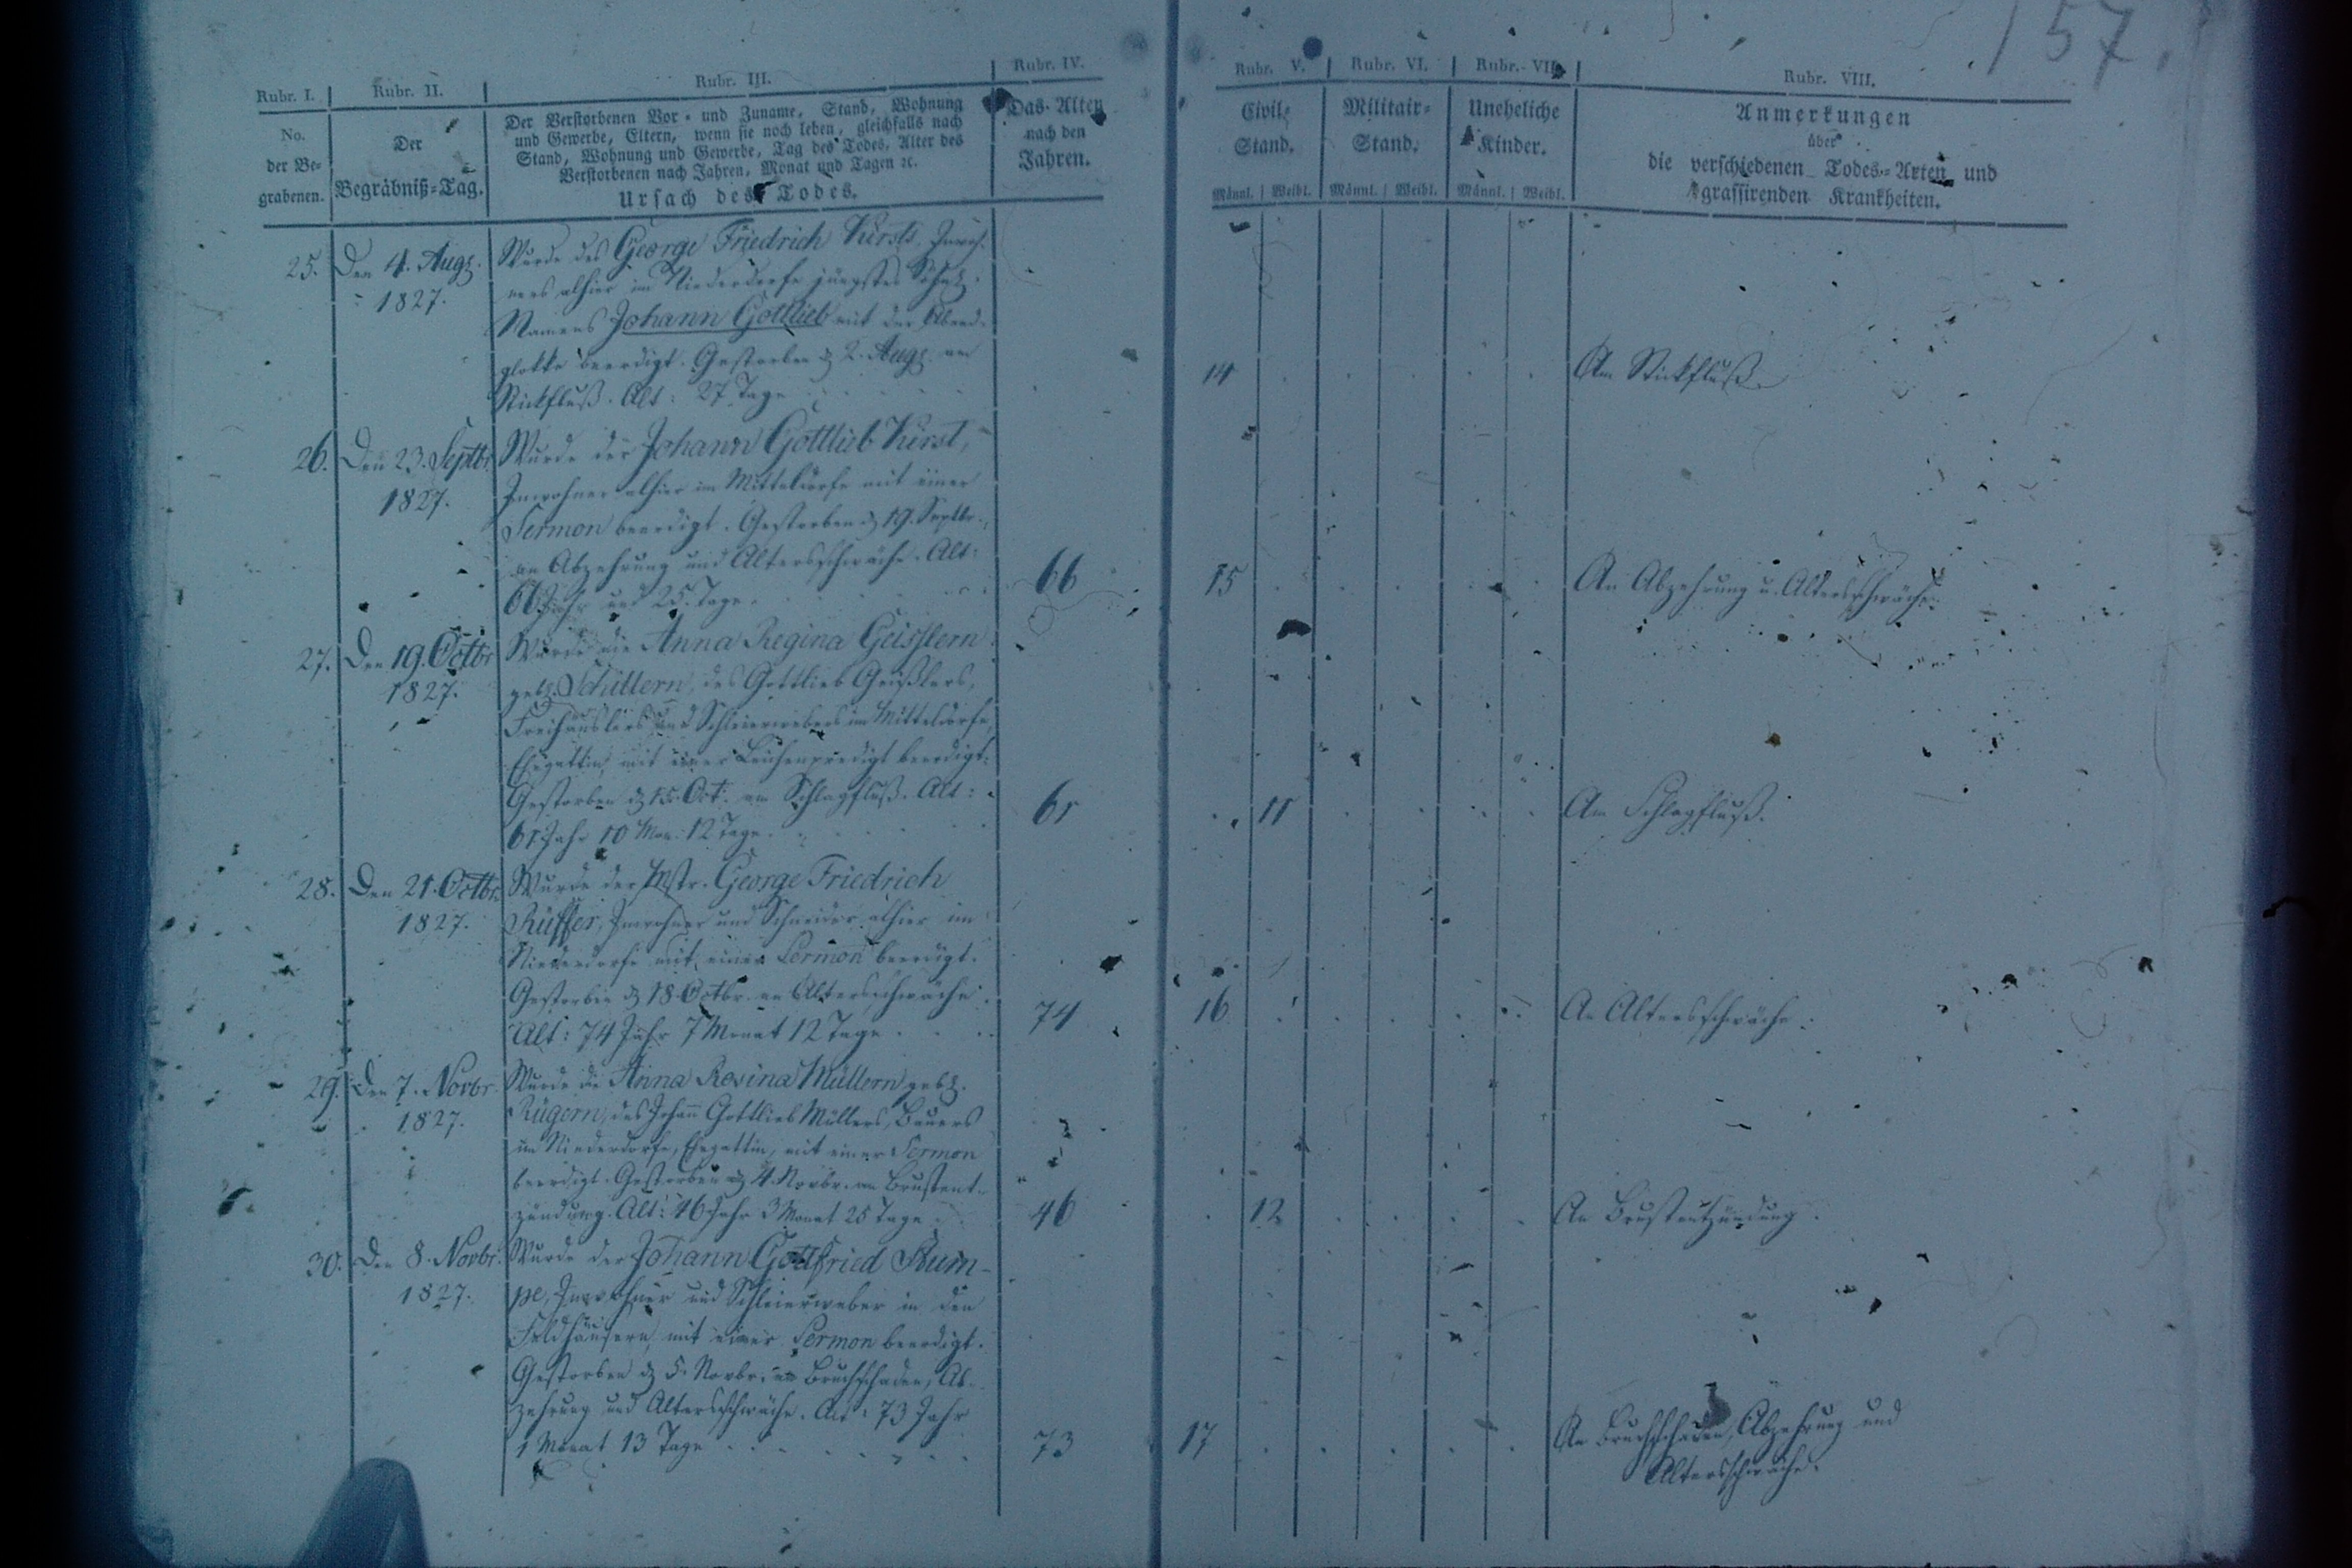 157.
Rubr. I. Rubr. II. Rubr. III. Rubr. IV. Rubr. V. Rubr. VI. Rubr. VII. Rubr. VIII.
No.
der Be-
grabenen.
Der
Begräbniß-Tag.
Der Verstorbenen Vor- und Zuname, Stand, Wohnung
und Gewerbe, Eltern, wenn sie noch leben, gleichfalls nach
Stand, Wohnung und Gewerbe, Tag des Todes, Alter des
Verstorbenen nach Jahren, Monat und Tagen ꝛc.
Ursach des Todes.
Das Alter
nach den
Jahren.
Civil-
Stand.
Männl. Weibl.
Militair-
Stand.
Männl. Weibl.
Uneheliche
Kinder.
Männl. Weibl.
Anmerkungen
über
die verschiedenen Todes-Arten und
grassirenden Krankheiten.
25. Den 4. Aug.
1827.
Wurde des George Friedrich Kirsts, Inwoh-
ners alhier im Niederdorfe jüngstes
Namens Johann Gottlieb mit der Abend-
glokke beerdigt. Gestorben 2. Aug. am
Stickfluß. Alt: 27 Tage
14
Am Stickfluß.
26. Den 23. Septbr.
1827.
Wurde der Johann Gottlieb Kirst,
Inwohner alhier im Mitteldorfe mit einer
Sermon beerdigt. Gestorben 19. Septbr.
an Abzehrung und Altersschwäche. Alt:
66 Jahr und 25. Tage.
66 15
An Abzehrung u. Altersschwäche.
27. Den 19. Octbr
1827.
Wurde die Anna Regina Geisslern
geb. des Gottlieb Geißlers,
Freihäuslers und Schleierwebers im Mitteldorfe,
Ehegattin, mit einer Leichenpredigt beerdigt.
Gestorben 15. Oct. am Schlagfluß. Alt:
61 Jahr 10 Mon. 12 Tage.
61 11
Am Schlagfluß.
28. Den 21. Octbr.
1827.
Wurde der Mstr. George Friedrich
Rüffer, Inwohner und Schneider alhier im
Niederdorfe mit einer Sermon beerdigt.
Gestorben 18. Octbr. an Altersschwäche.
Alt: 74 Jahr 7 Monat 12 Tage
74 16
An Altersschwäche.
29. Den 7. Novbr.
1827.
Wurde die Anna Rosina Müllern geb.
Rügern, des Johann Gottlieb Müllers, Bauers
im Niederdorfe, Ehegattin, mit einer Sermon
beerdigt. Gestorben 4. Novbr. an Brustent-
zündung. Alt: 46 Jahr 3 Monat 25 Tage.
46 12
An Brustentzündung.
30. Den 8. Novbr.
1827.
Wurde der Johann Gottfried Rum-
pe, Inwohner und Schleierweber in den
Feldhäusern, mit einer Sermon beerdigt.
Gestorben 5. Novbr. an Bruchschaden, Ab-
zehrung und Altersschwäche. Alt: 73 Jahr
1 Monat 13 Tage
73 17
An Bruchschaden, Abzehrung und
Altersschwäche.